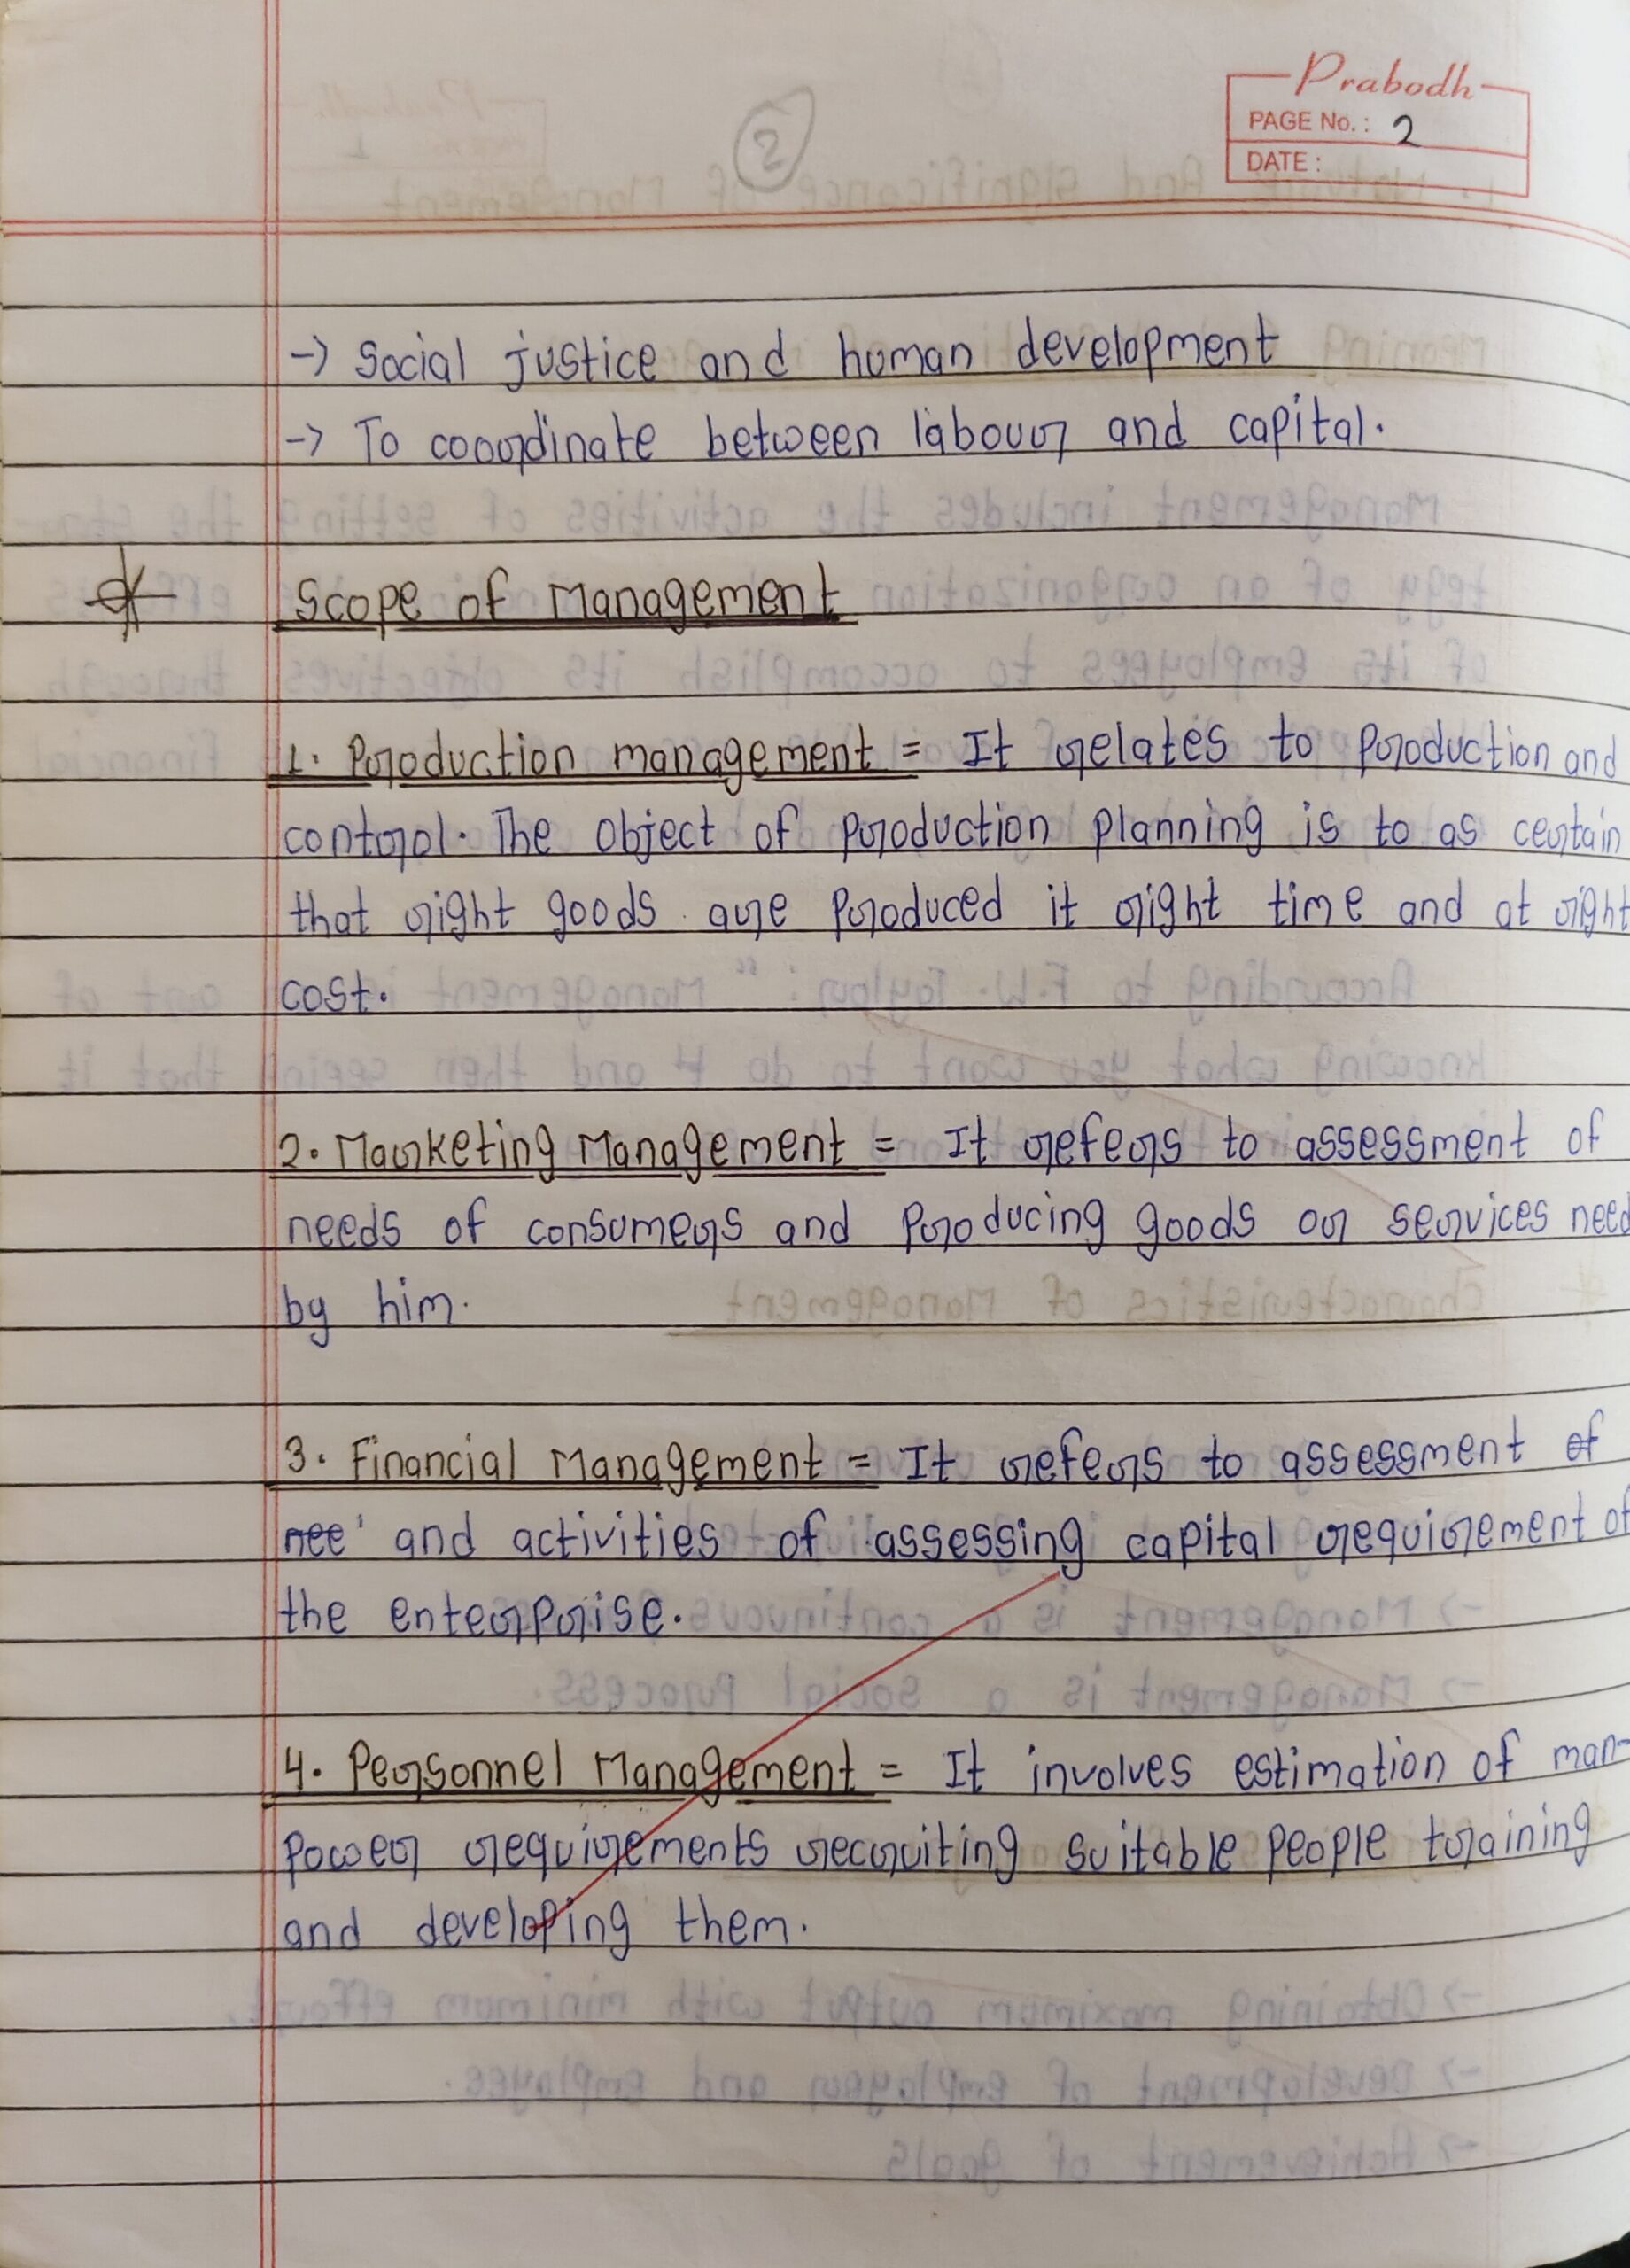 Prabodh
PAGE No.: 2
DATE:
2
-> Social justice and human development
-> To cooordinate between labour and capital.
Scope of Management
1. Production management = It relates to production and
control. The object of production planning is to as certain
that right goods are produced it right time and at right
cost.
2. Marketing Management = It refers to assessment of
needs of consumers and producing goods or services need
by him.
3. Financial Management = It refers to assessment of
nee and activities of assessing capital requirement of
the enterprise.
4. Personnel Management = It involves estimation of man-
power requirements recruiting suitable people training
and developing them.